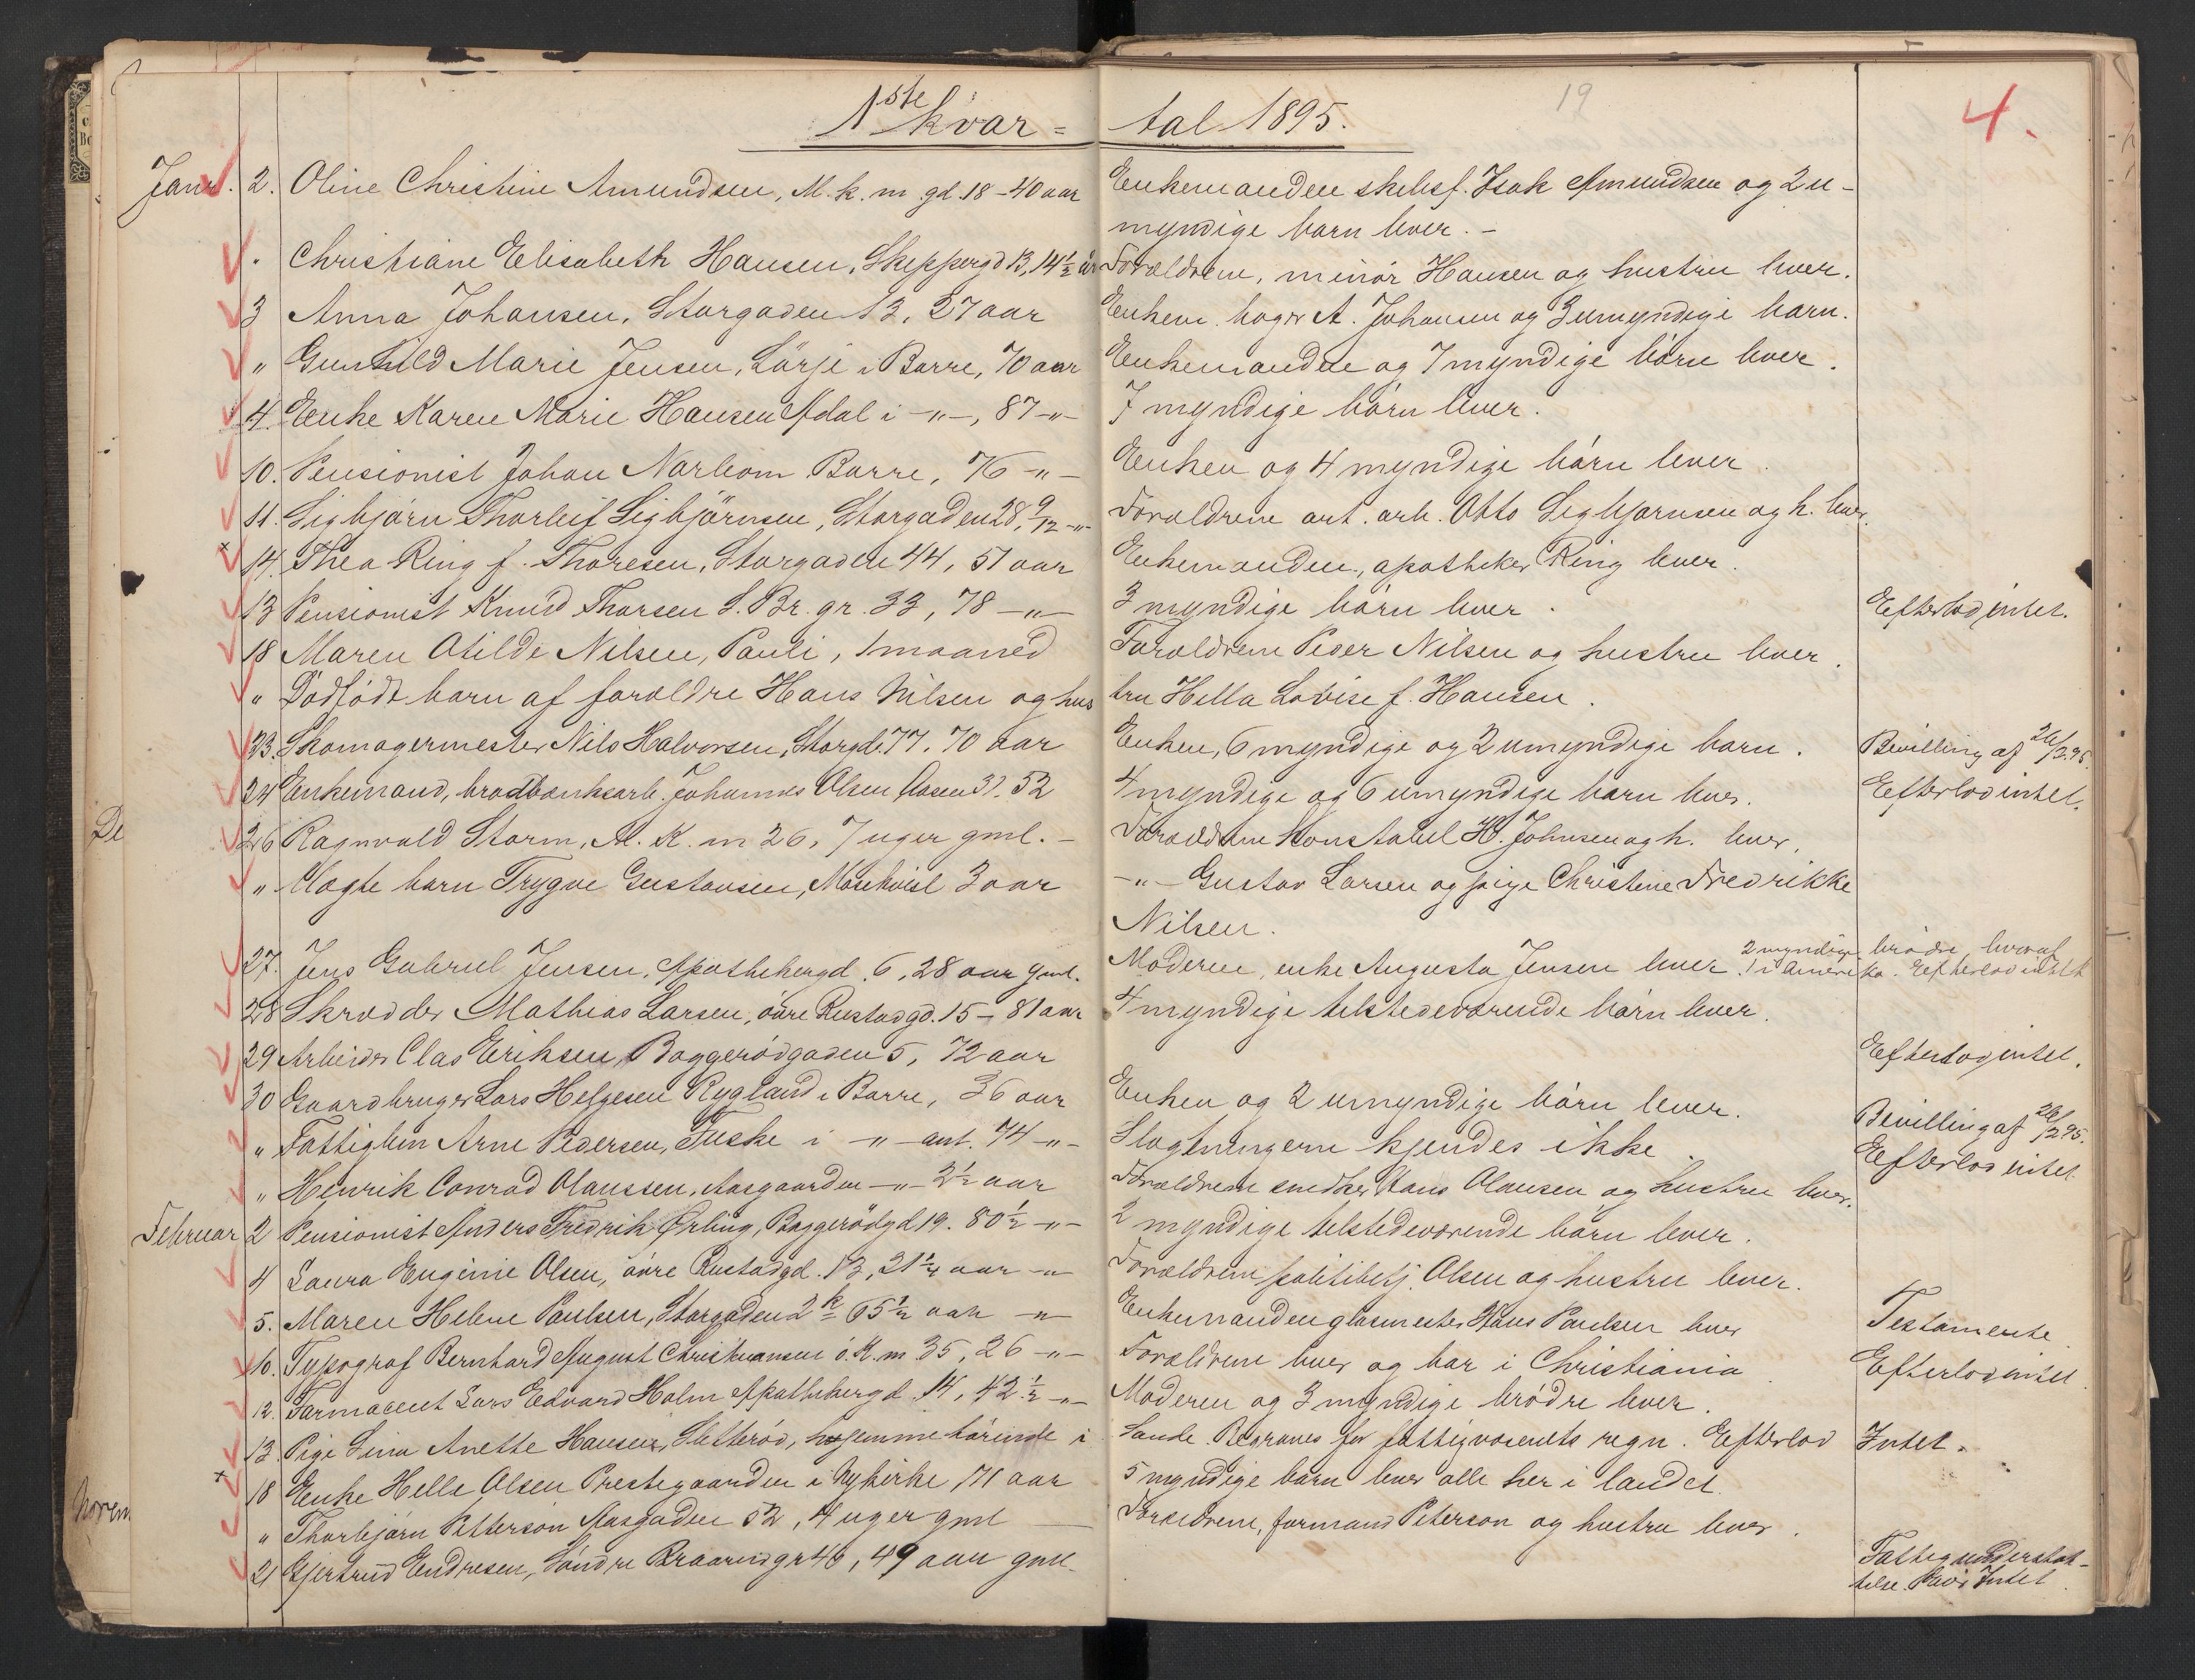 1ste kvar= tal 1895.
19
4.
Janr. 2. Oline Christine Amundsen, M. k. m. gd. 18 - 40 aar Enkemanden skibsf. Isak Amundsen og 2 u-
myndige barn lever. -
" Christiane Elisabeth Hansen, Skeppergd 13, 14½ år Forældrene, minör Hansen og hustru lever.
3 Anna Johansen, Storgaden 13, 27 aar Enkem. bager A. Johansen og 3 umyndige barn.
" Gunhild Marie Jensen, Lörje i Borre, 70 aar Enkemanden og 7 myndige börn lever.
4. Enke Karen Marie Hansen Adal i -"-, 87 -"- 7 myndige börn lever.
10. Pensionist Johan Narbom Borre, 76 -"- Enken og 4 myndige börn lever.
11. Sigbjörn Thorleif Sigbjörnsen, Storgaden 28, 9/12 -"- Forældrene art. arb. Otto Sigbjörnsen og h. lever.
14. Thea Ring f. Thoresen, Storgaden 44, 51 aar Enkemanden, apotheker Ring lever.
13 Pensionist Knud Thorsen S. Br. gr. 33, 78 -"- 3 myndige börn lever. Efterlod intet.
18 Maren Otilde Nilsen, Pauli, 1 maaned Forældrene Peder Nilsen og hustru lever.
" Dödfödt barn af forældre Hans Nilsen og hus tru Hella Lovise f. Hansen.
23. Skomagermester Nils Halvorsen, Storgd. 77. 70 aar Enken, 6 myndige og 2 umyndige barn. Bevilling af 26/2 95.
24 Enkemand, brodbænksarb. Johannes Olsen Aasen 31. 52 4 myndige og 6 umyndige börn lever. Efterlod intet.
26 Ragnvald Storm, M. K. m 26, 7 uger gml. - Forældrene Konstabel H. Johnsen og h. lever.
" Uægte barn Trygve Gustavsen, Mosekvist 3 aar -"- Gustav Larsen og pige Christine Fredrikke
Nilsen.
27. Jens Gabriel Jensen, Apothekergd. 6, 28 aar gml. Moderen, enke Augusta Jensen lever. 2 myndige brödre hvoraf
1 i Amerika. Efterlod intet
28 Skrædder Mathias Larsen, övre Rustadgd. 15 - 81 aar 4 myndige tilstedeværende börn lever.
29 Arbeider Clas Eriksen Baggerödgaden 5, 72 aar Efterlod intet.
30 Gaardbruger Lars Helgesen Rygland i Borre, 36 aar Enken og 2 umyndige börn lever. Bevilling af 26/2 95.
" Fattiglem Arne Pedersen, Fuske i -"- ant. 74 -"- Slægtningerne kjendes ikke. Efterlod intet.
" Henrik Conrad Olaussen, Aasgaarden -"- 2½ aar Forældrene snedker Hans Olausen og hustru lever.
Februar 2 Pensionist Anders Fredrik Örbing, Baggerödgd 19. 80½ -"- 2 myndige tilstedeværende börn lever.
4 Laura Eugenie Olsen, övre Rustadgd. 13, 21½ aar -"- Forældrene politibetj. Olsen og hustru lever.
5. Maren Helene Paulsen, Storgaden 2 k 65½ aar -"- Enkemanden glasmester Hans Paulsen lever Testamente
10. Typograf Bernhard August Christiansen ö. K. m 35, 26 -"- Forældrene lever og bor i Christiania Efterlod intet
12. Farmaceut Lars Edvard Holm Apothekergd. 14, 42½ -"- Moderen og 3 myndige brödre lever.
13. Pige Lina Anette Hansen, Sletteröd, hjemmehörende i Sande. Begraves for fattigvæsenets regn. Efterlod Intet.
18 Enke Helle Olsen Prestegaarden i Nykirke 71 aar 5 myndige barn lever alle her i landet.
" Thorbjörn Petterson Aasgaden 52, 4 uger gml Forældrene, formand Peterson og hustru lever.
21 Gjertrud Endresen, Söndre Braarudgr 46, 49 aar gml. Fattigunderstöt-
telse. Intet
De
Novem